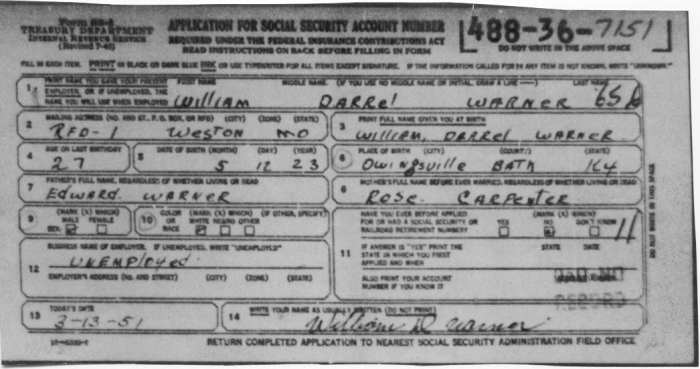 Form SS-5
TREASURY DEPARTMENT
INTERNAL REVENUE SERVICE
(Revised 7-48)
APPLICATION FOR SOCIAL SECURITY ACCOUNT NUMBER
REQUIRED UNDER THE FEDERAL INSURANCE CONTRIBUTIONS ACT
READ INSTRUCTIONS ON BACK BEFORE FILLING IN FORM
488-36-7151
DO NOT WRITE IN THE ABOVE SPACE
FILL IN EACH ITEM. PRINT IN BLACK OR DARK BLUE INK OR USE TYPEWRITER FOR ALL ITEMS EXCEPT SIGNATURE. IF THE INFORMATION CALLED FOR IN ANY ITEM IS NOT KNOWN, WRITE "UNKNOWN."
1 PRINT NAME YOU GAVE YOUR PRESENT EMPLOYER, OR IF UNEMPLOYED, THE NAME YOU WILL USE WHEN EMPLOYED
FIRST NAME MIDDLE NAME. (IF YOU USE NO MIDDLE NAME OR INITIAL, DRAW A LINE —) LAST NAME
William DARRel WARNER
2 MAILING ADDRESS (NO. AND ST., P. O. BOX, OR RFD) (CITY) (ZONE) (STATE)
RFD-1 WESTON MO
3 PRINT FULL NAME GIVEN YOU AT BIRTH
William, DARREL WARNER
4 AGE ON LAST BIRTHDAY
27
5 DATE OF BIRTH (MONTH) (DAY) (YEAR)
5 12 23
6 PLACE OF BIRTH (CITY) (COUNTY) (STATE)
Owingsville BATH KY
7 FATHER'S FULL NAME, REGARDLESS OF WHETHER LIVING OR DEAD
Edward. WARNER
8 MOTHER'S FULL NAME BEFORE EVER MARRIED, REGARDLESS OF WHETHER LIVING OR DEAD
ROSE. CARPENTER
9 SEX (MARK (X) WHICH) MALE FEMALE
10 COLOR OR RACE (MARK (X) WHICH) (IF OTHER, SPECIFY)
WHITE NEGRO OTHER
HAVE YOU EVER BEFORE APPLIED FOR OR HAD A SOCIAL SECURITY OR RAILROAD RETIREMENT NUMBER?
YES (MARK (X) WHICH) NO DON'T KNOW
11 IF ANSWER IS "YES" PRINT THE STATE IN WHICH YOU FIRST APPLIED AND WHEN
STATE DATE
ALSO PRINT YOUR ACCOUNT NUMBER IF YOU KNOW IT
RECORD
12 BUSINESS NAME OF EMPLOYER. IF UNEMPLOYED, WRITE "UNEMPLOYED"
UNEMPloyed
EMPLOYER'S ADDRESS (NO. AND STREET) (CITY) (ZONE) (STATE)
13 TODAY'S DATE
3-13-51
14 WRITE YOUR NAME AS USUALLY WRITTEN (DO NOT PRINT)
William D. Warner
RETURN COMPLETED APPLICATION TO NEAREST SOCIAL SECURITY ADMINISTRATION FIELD OFFICE
DO NOT WRITE IN THIS SPACE